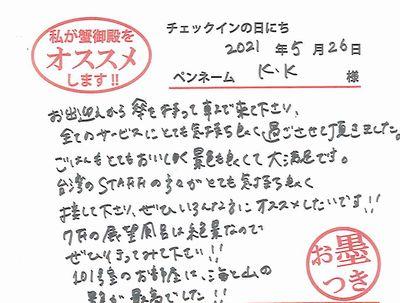 私が蟹御殿を
オススメ
します!!
チェックインの日にち
2021 年 5 月 26 日
ペンネーム K.K 様
お出迎えから傘を持って車まで来て下さり、
全てのサービスにとても気持ち良く過ごさせて頂きました。
ごはんもとてもおいしく景色も良くて大満足です。
台湾のSTAFFの方々がとても気持ち良く
接して下さり、ぜひいろんな方にオススメしたいです!!
7Fの展望風呂は絶景なので
ぜひ行ってみて下さい!!
101号室のお部屋は、海と山の
景色が最高でした!!
お墨
つき